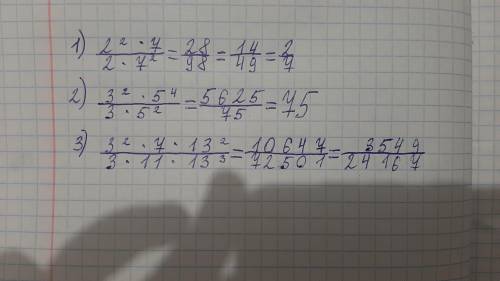 1) 2² · 7 / 2 · 7² = 28 / 98 = 14 / 49 = 2 / 7
2) 3² · 5⁴ / 3 · 5² = 5625 / 75 = 75
3) 3² · 7 · 13² / 3 · 11 · 13³ = 10647 / 72501 = 3549 / 24167